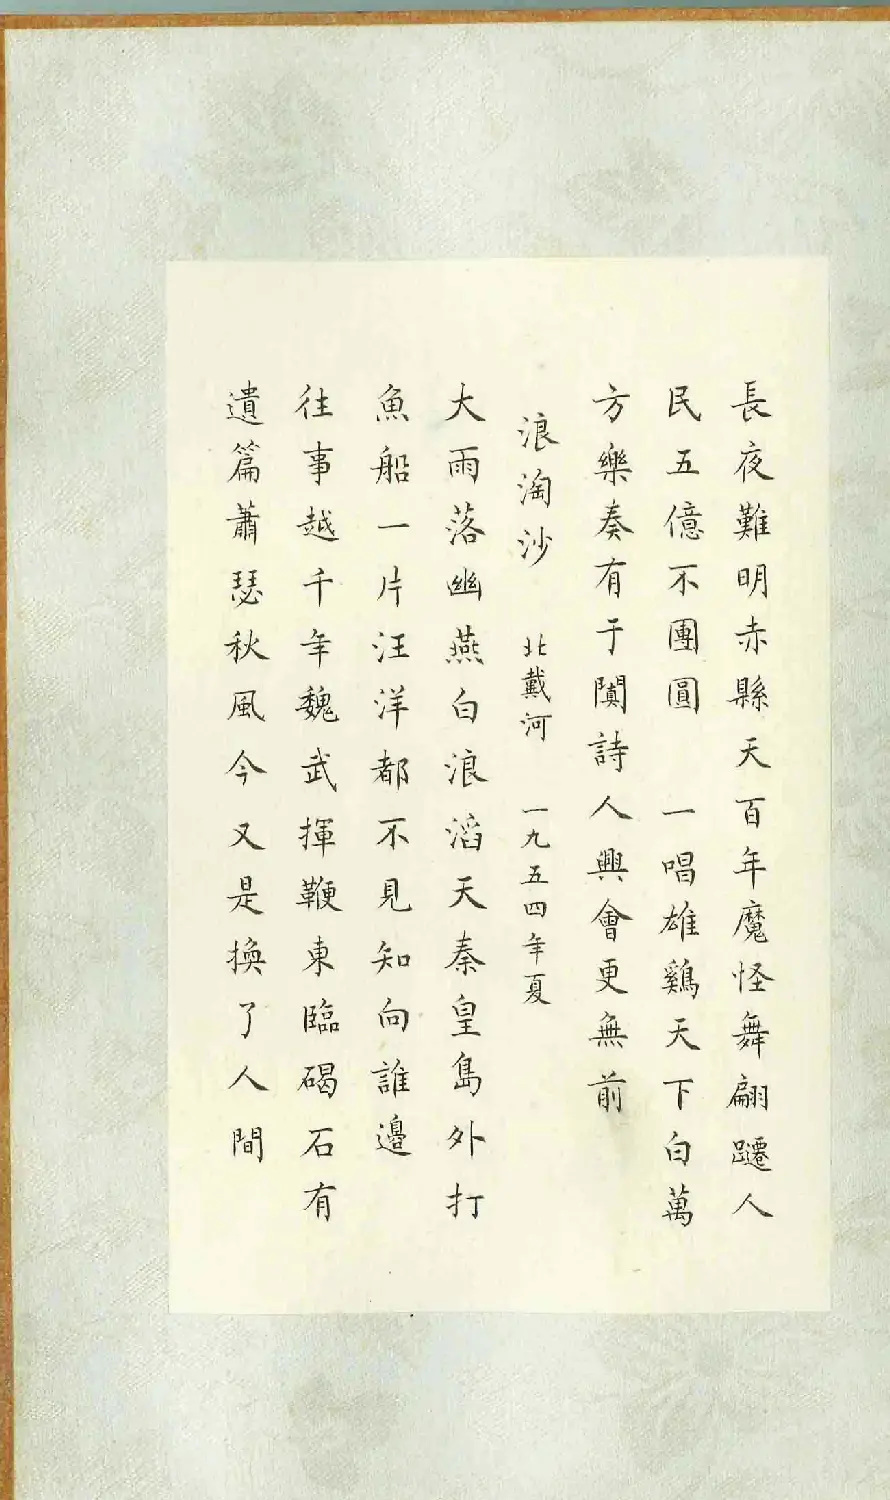 長夜難明赤縣天百年魔怪舞翩躚人
民五億不團圓 一唱雄鷄天下白萬
方樂奏有于闐詩人興會更無前
浪淘沙 北戴河 一九五四年夏
大雨落幽燕白浪滔天秦皇島外打
魚船一片汪洋都不見知向誰邊
往事越千年魏武揮鞭東臨碣石有
遺篇蕭瑟秋風今又是換了人間